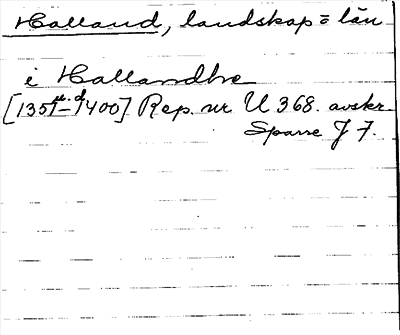 Halland, landskap = län
i Hallandhe
[1351-1400] Rep. nr U 368. avskr.
Sparre J 7.